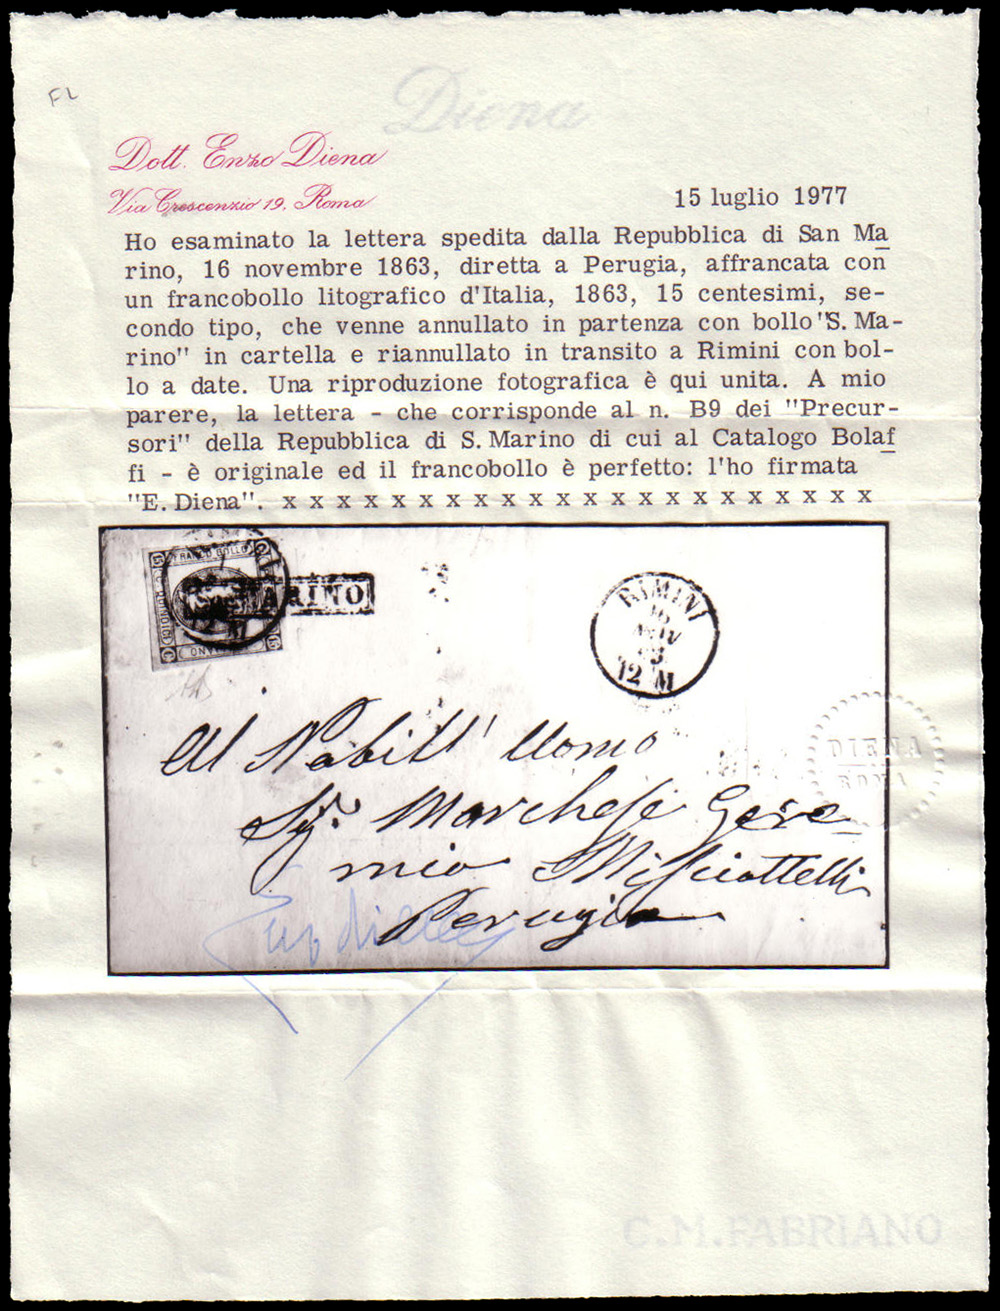 Diena
FL
Dott. Enzo Diena
Via Crescenzio 19, Roma
15 luglio 1977
Ho esaminato la lettera spedita dalla Repubblica di San Ma
rino, 16 novembre 1863, diretta a Perugia, affrancata con
un francobollo litografico d'Italia, 1863, 15 centesimi, se-
condo tipo, che venne annullato in partenza con bollo "S. Ma-
rino" in cartella e riannullato in transito a Rimini con bol-
lo a date. Una riproduzione fotografica è qui unita. A mio
parere, la lettera - che corrisponde al n. B9 dei "Precur-
sori" della Repubblica di S. Marino di cui al Catalogo Bolaf
fi - è originale ed il francobollo è perfetto: l'ho firmata
"E. Diena". x x x x x x x x x x x x x x x x x x x x x x x x
FRANCO BOLLO
C. QUINDICI
ARINO
12 M
RIMINI
16
NOV
63
12 M
Al Nobill' Uomo
Sig. Marchese Gere
mio Misciattelli
Perugia
DIENA
ROMA
Enzo Diena
C.M.FABRIANO